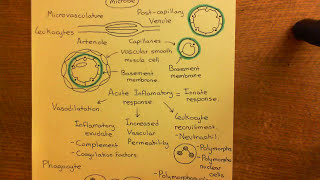 microbe
Microvasculature
Post-capillary
Venule
Leukocytes
Arteriole
Capillaries
vascular smooth
muscle cell
Basement
membrane
Basement
membrane
Acute Inflammatory = Innate
response response.
Vasodilatation.
Inflamatory
exudate.
- Complement
- Coagulation factors
Increased
Vascular
Permeability.
Leukocyte
recruitment.
- Neutrophil.
Polymorphs
Polymorpho
nuclear
cells
Phagocyte